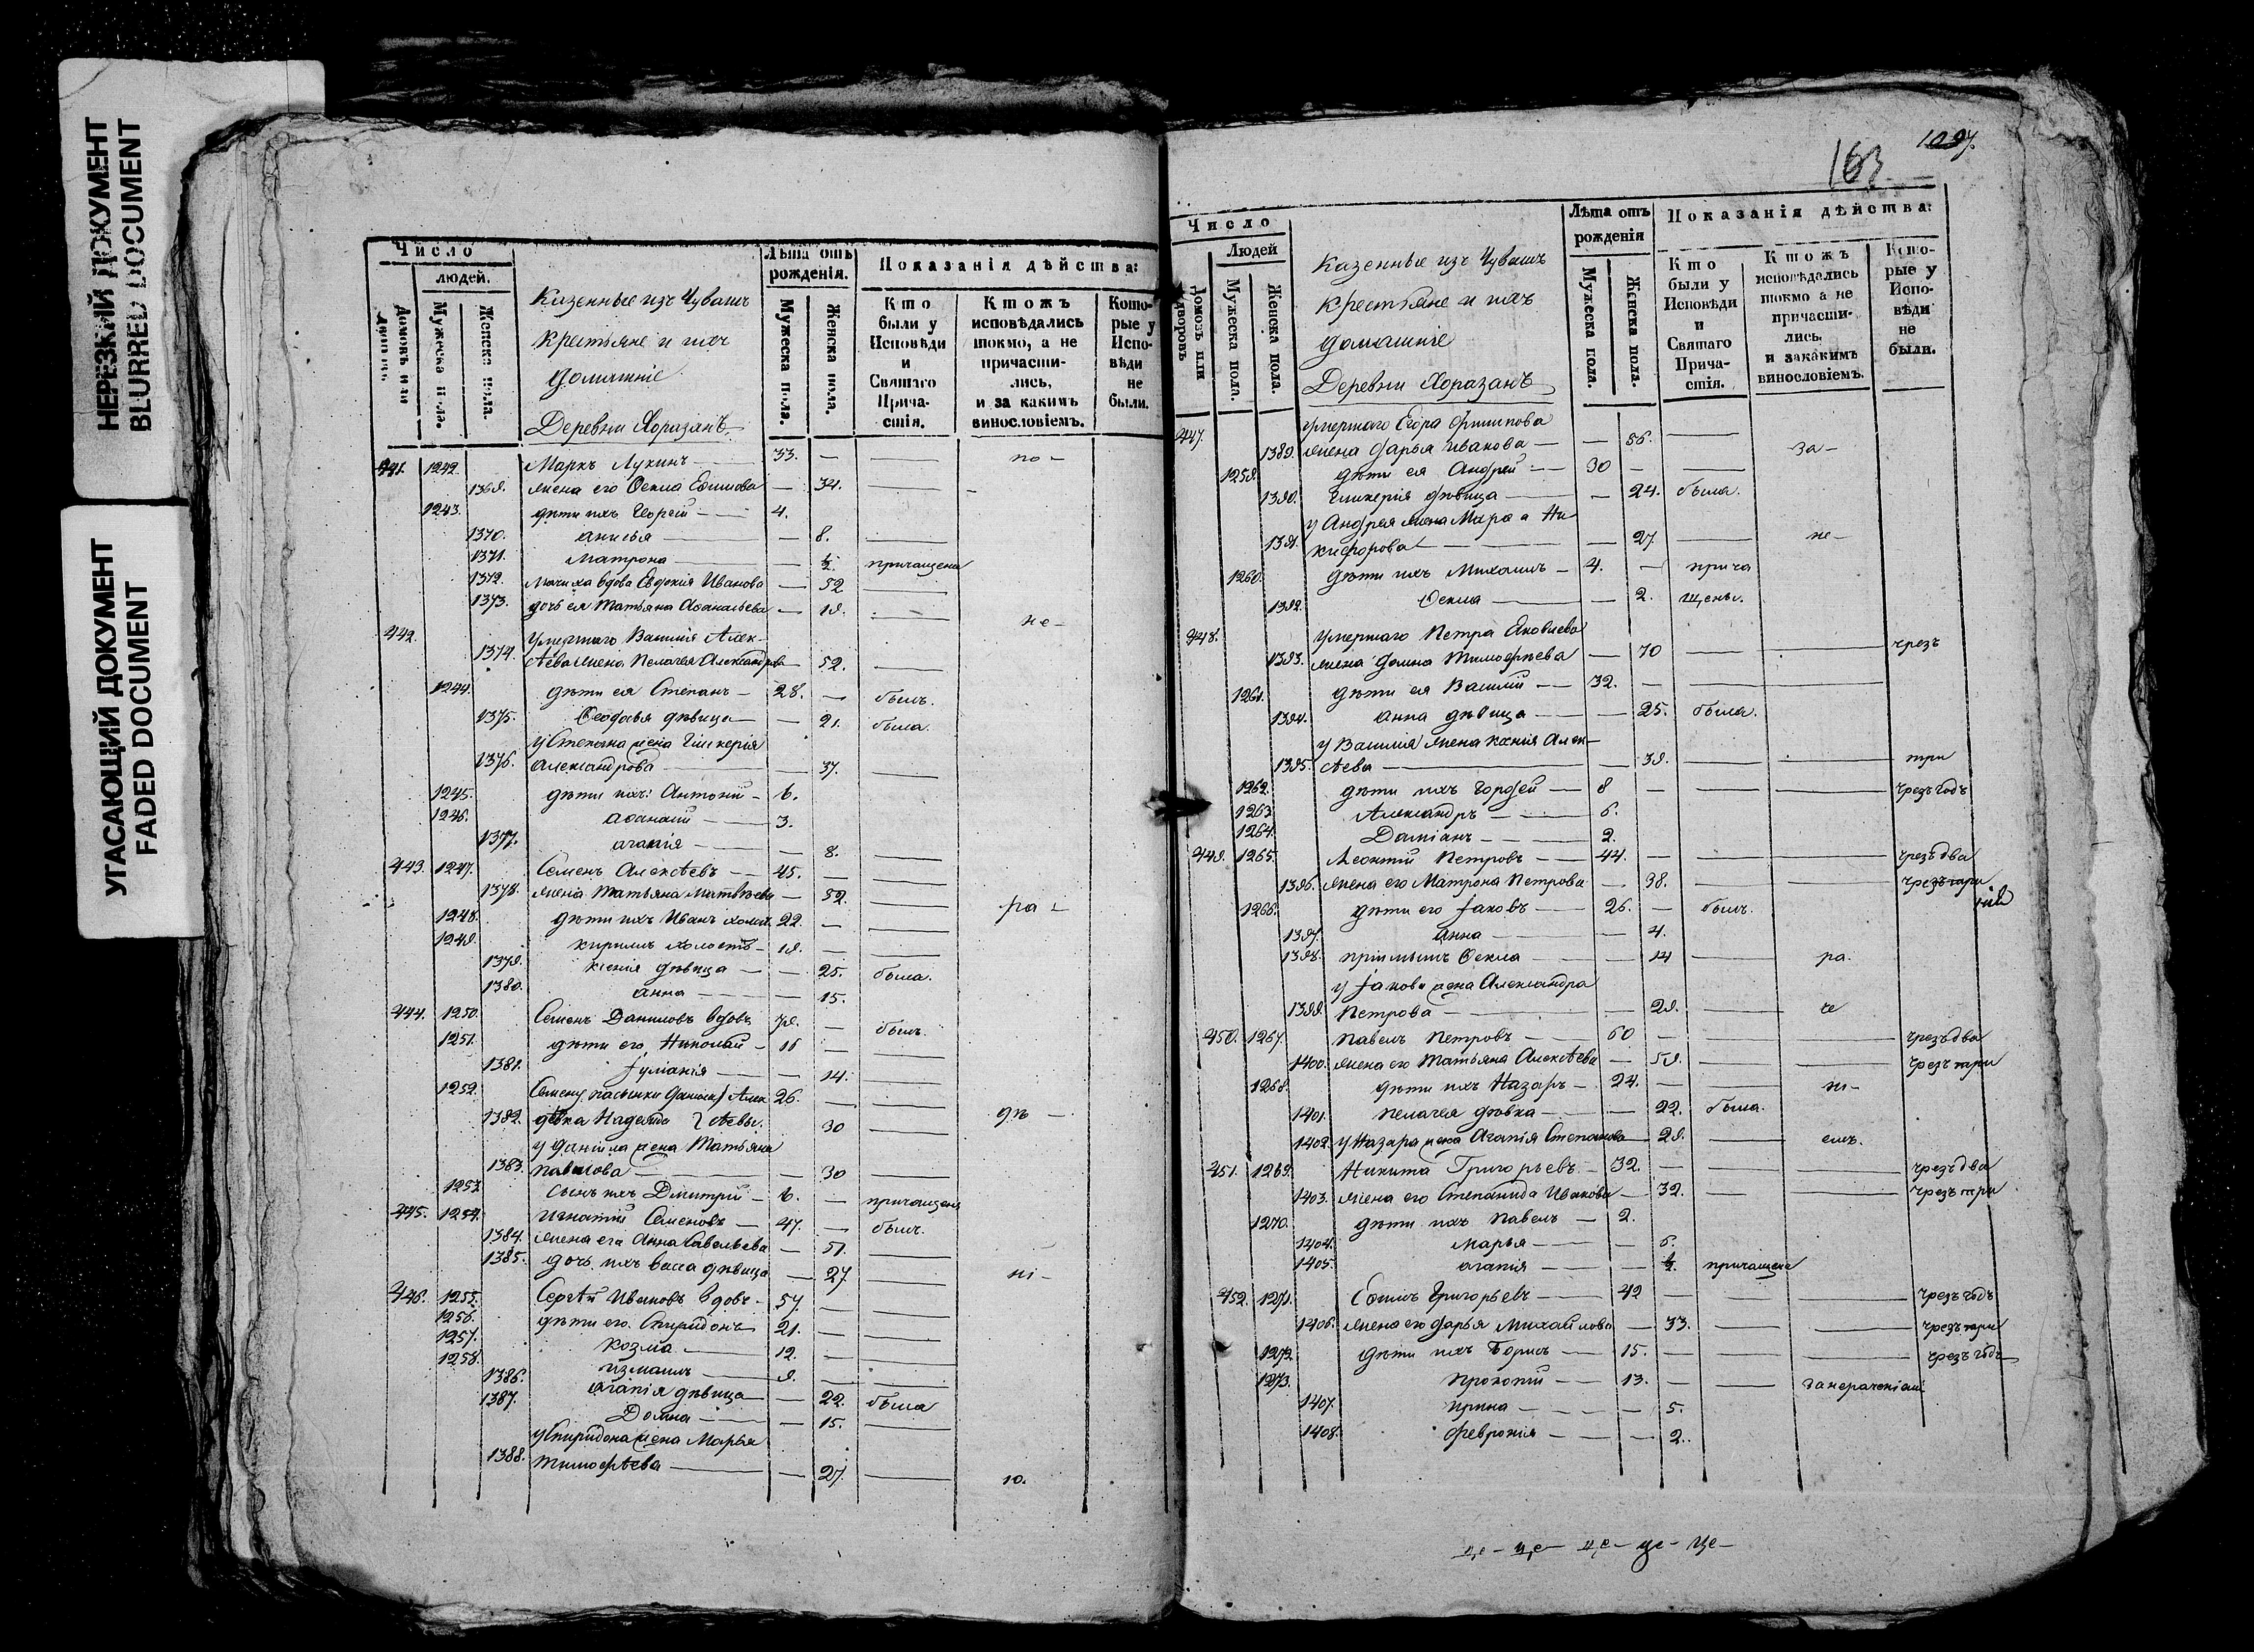 НЕРЕЗКИЙ ДОКУМЕНТ
BLURRED DOCUMENT
УГАСАЮЩИЙ ДОКУМЕНТ
FADED DOCUMENT
Число
людей.
Домовъ или
Мужеска пола.
Женска пола.
Казенные изъ Чувашъ
крестьяне и ихъ
домашніе
Деревни Хоразанъ
Лѣта отъ
рожденія.
Мужеска пола.
Женска пола.
Показанія дѣйства:
Кто
были у
Исповѣди
и
Святаго
Прича-
стія.
Ктожъ
исповѣдались
токмо, а не
причасти-
лись,
и за какимъ
винословіемъ.
Кото-
рые у
Испо-
вѣди
не
были.
441. 1242. Маркъ Лукинъ — 33. — — по —
1369. жена его Ѳекла Ефимова — 34. —
1243. дѣти ихъ Георгій — 4.
1370. Анисья — — 8. —
1371. Матрона — — ½. причащена
1372. мачиха вдова Евдокія Иванова — 52 —
1373. дочь ея Татьяна Аѳанасьева — 19. — не —
442. Умершаго Василія Алек-
1374. сѣева жена Пелагея Александрова — 52. —
1244. дѣти ея Степанъ — 28. — былъ.
1375. Ѳеодосья дѣвица — — 21. была.
у Степана жена Гликерія
1376. Александрова — — 37. —
1245. дѣти ихъ: Антоній — 6.
1246. Аѳанасій — 3.
1377. Агапія — — 8. —
443. 1247. Семенъ Алексѣевъ — 45. — —
1378. жена Татьяна Матвѣева — 52. — ра —
1248. дѣти ихъ Иванъ холост. 22. — —
1249. Кирилъ холостъ — 19. — —
1379. Ксенія дѣвица — — 25. была.
1380. Анна — — 15.
444. 1250. Семенъ Даниловъ вдовъ 79. — былъ.
1251. дѣти его Николай — 11 — —
1381. Іуліанія — — 14. —
1252. Семену пасынки Данила Алек 26. — —
1382. дѣвка Надежда сѣевы. 30 — дѣ —
у Данила жена Татьяна
1383. Павлова — — 30 —
1253. сынъ ихъ Дмитрій — 6. — причащенъ
445. 1254. Игнатій Семеновъ — 47. — былъ.
1384. жена его Анна Савельева — 51. —
1385. дочь ихъ Васса дѣвица — 27 — ні —
446. 1255. Сергѣй Ивановъ вдовъ — 57. — —
1256. дѣти его Спиридонъ 21. — —
1257. Козма — 12. — —
1258. Измаилъ — 9. — —
1386. Агапія дѣвица — — 22. была
1387. Домна — — 15. —
у Спиридона жена Марья
1388. Тимофѣева — — 27. — ю.
163
1027.
Число
Людей
Домовъ или
дворовъ
Мужеска пола.
Женска пола.
Казенные изъ Чувашъ
крестьяне и ихъ
домашніе
Деревни Хоразанъ
Лѣта отъ
рожденія
Мужеска пола.
Женска пола.
Показанія дѣйства:
Кто
были у
Исповѣди
и
Святаго
Прича-
стія.
Ктожъ
исповѣдались
токмо а не
причасти-
лись,
и закакимъ
винословіемъ.
Кото-
рые у
Испо-
вѣди
не
были.
447. умершаго Егора Филипова
1389. жена Дарья Иванова — — 56. — за —
1259. дѣти ея Андрей — 30 — —
1390. Гликерія дѣвица — — 24. была.
у Андрея жена Марѳа Ни
1391. кифорова — — 27. — не —
1260. дѣти ихъ Михаилъ — 4. — прича
1392. Ѳекла — — 2. щены.
448. умершаго Петра Яковлева
1393. жена Домна Тимофѣева — 70 — — чрезъ
1261. дѣти ея Василій — 32. — —
1394. Анна дѣвица — — 25. была.
у Василія жена Ксенія Алек-
1395. сѣева — — 39. — — три
1262. дѣти ихъ Гордей — 8 — — — чрезъ годъ
1263. Александръ — 6.
1264. Даміанъ — 2.
449. 1265. Леонтій Петровъ — 44. — — — чрезъ два
1396. жена его Матрона Петрова — 38. — — чрезъ три
1266. дѣти его Іаковъ — 26. — былъ.
1397. Анна — — 4.
1398. пріимышъ Ѳекла — — 14 — ра.
у Іакова жена Александра
1399. Петрова — — 29. —
450. 1267. Павелъ Петровъ — 60 — — — чрезъ два
1400. жена его Татьяна Алексѣева — 59. — — чрезъ три
1268. дѣти ихъ Назаръ — 24. — ні —
1401. Пелагея дѣвка — — 22. была.
1402. у Назара жена Агапія Степанова — 29. — емъ.
451. 1269. Никита Григорьевъ — 32. — — чрезъ два
1403. жена его Степанида Иванова — 32. — — чрезъ три
1270. дѣти ихъ Павелъ — 2.
1404. Марья — — 6.
1405. Агапія — — ½. причащена
452. 1271. Ефимъ Григорьевъ — 42 — — — чрезъ годъ
1406. жена его Дарья Михайлова — 33. — — чрезъ три
1272. дѣти ихъ Борисъ — 15. — — чрезъ годъ
1273. Прокопій — 13. — — занераченіемъ
1407. Ирина — — 5.
1408. Февронія — — 2.
це — це — це — це — це —